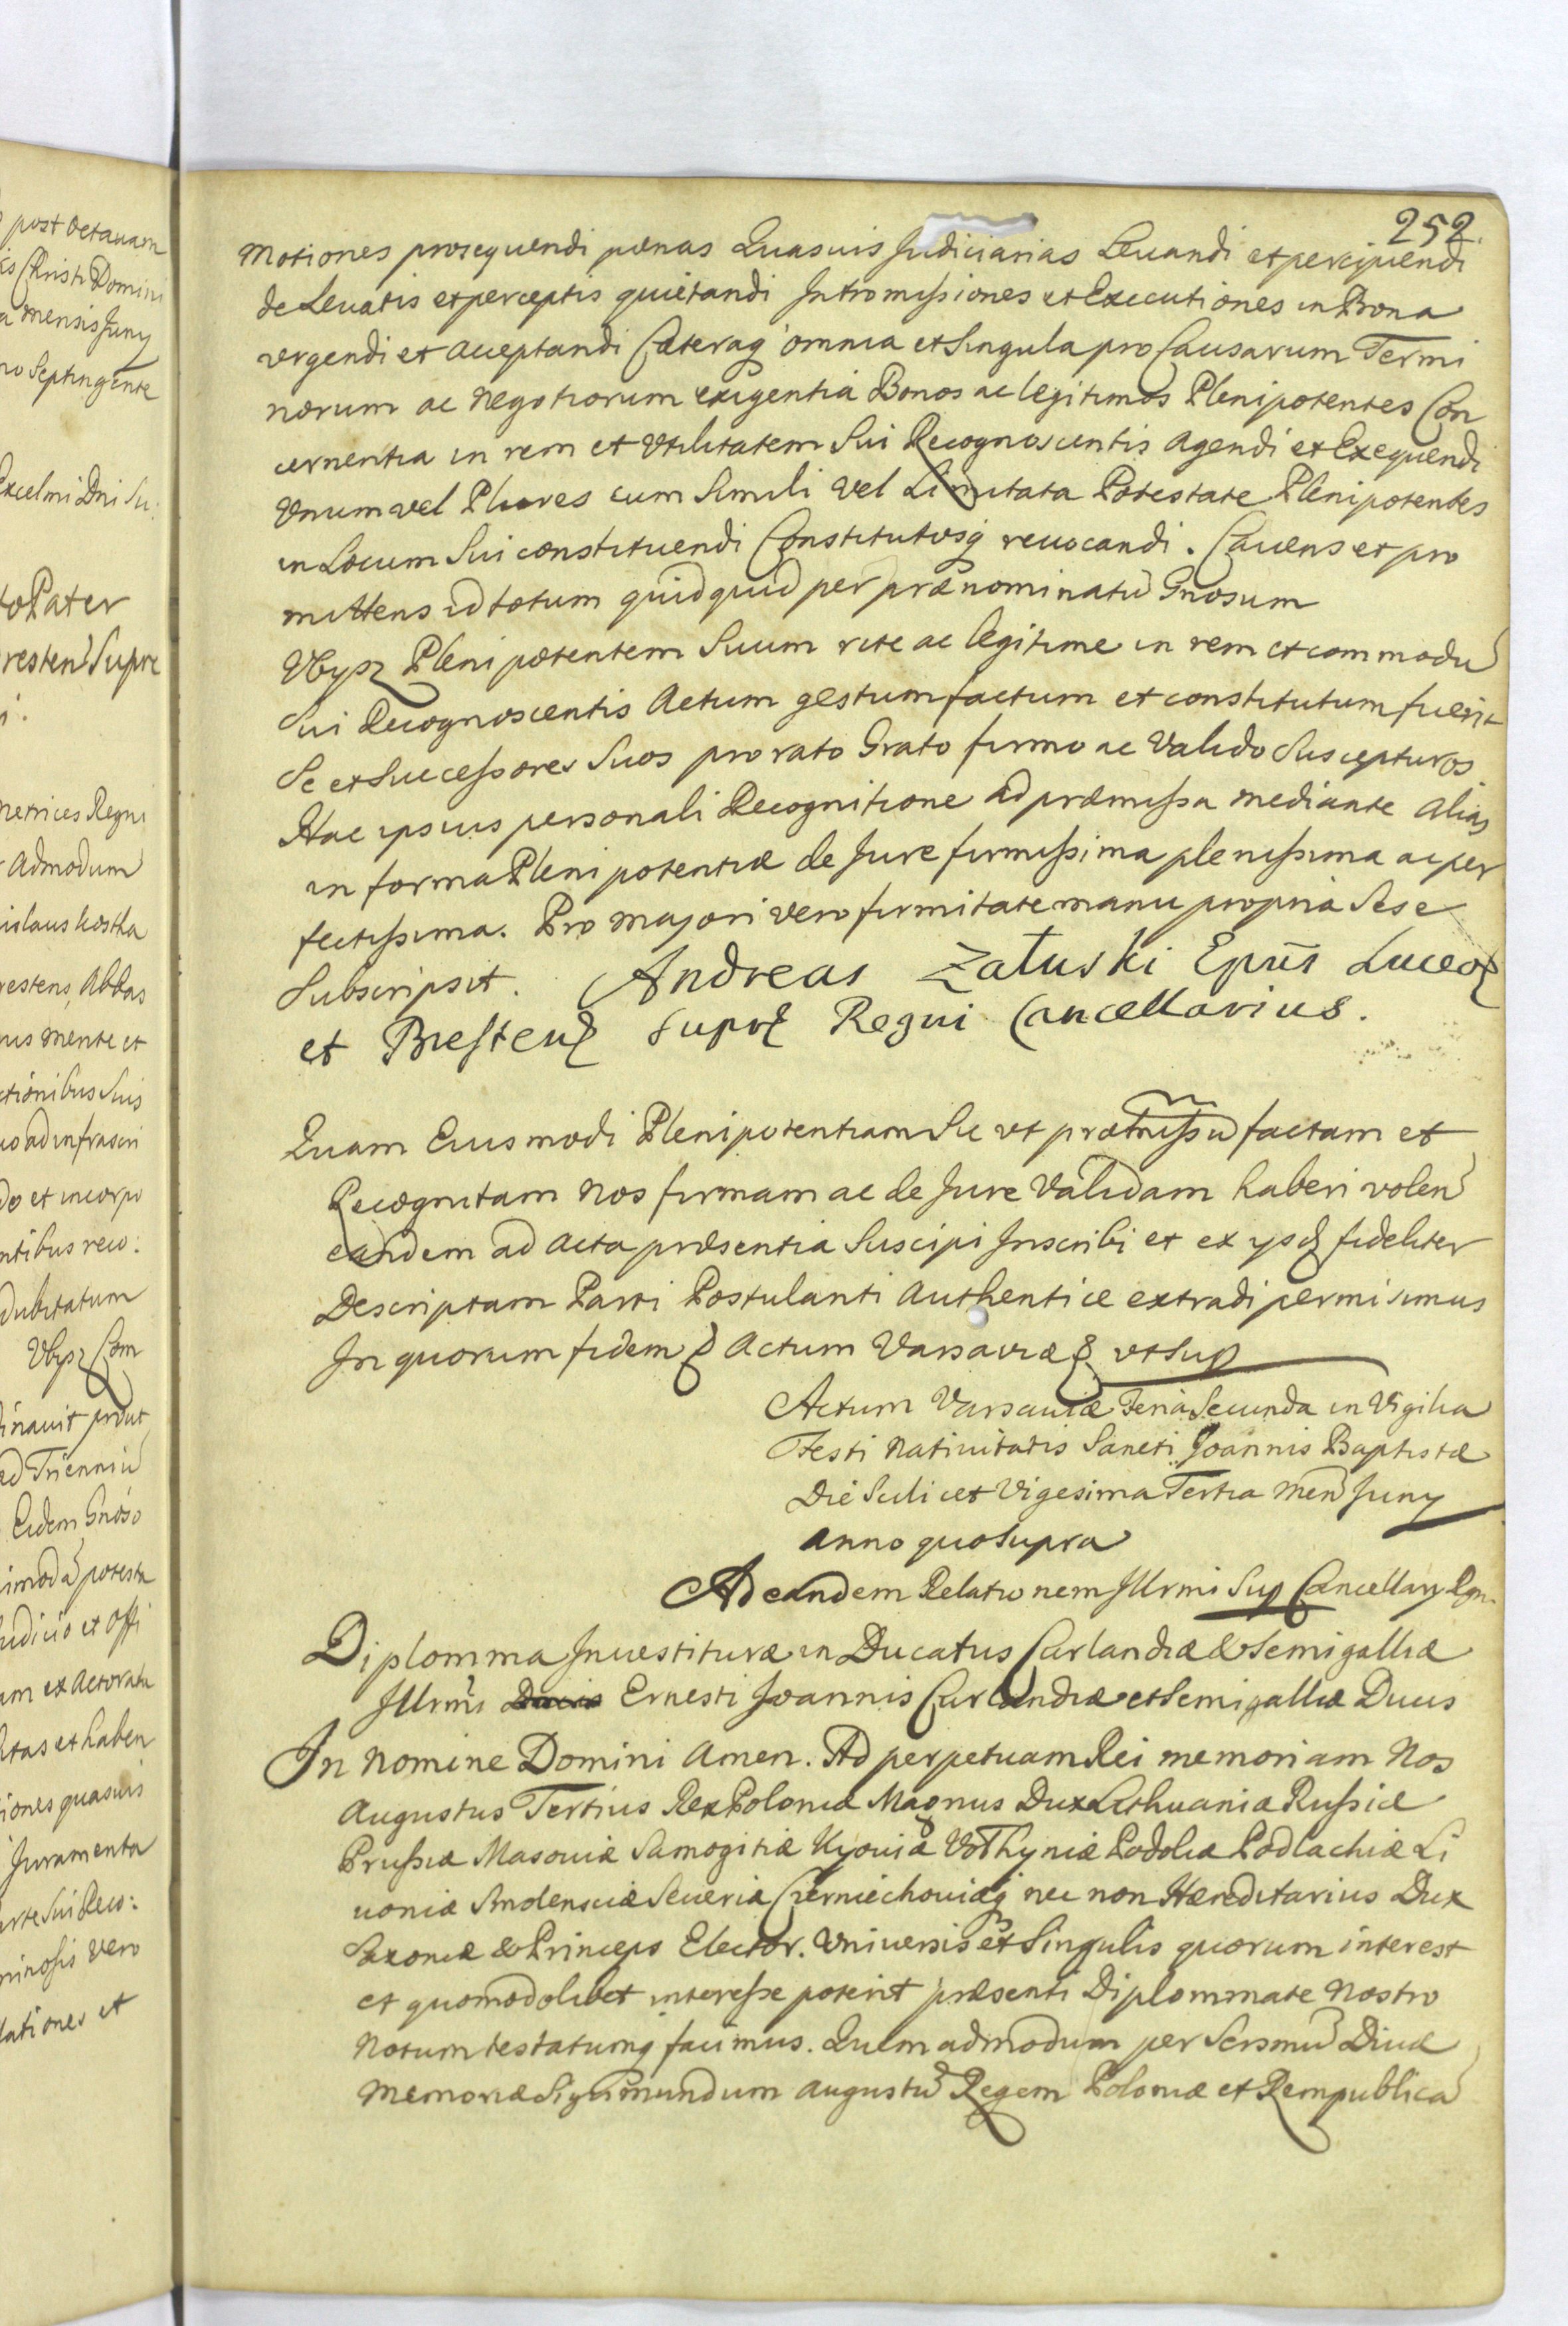 post Octauam
is Christi Domini
a mensis Juny
no Septingente
Excelmi Dni Su:
to Pater
resten Supre
netrices Regni
Admodum
islaus Kostka
restens, Abbas
us mente et
ctionibus Suis
us ad infrascri
do et incorpo
ntibus reco:
dubitatum
Vbysz Com
inauit prout
ad Trienniu
Eidem Gnoso
imoda potesta
udicio et Offi
um ex Actoratu
itas et haben
iones quasuis
Juramenta
arte Sui Reco:
minosis vero
lationes et
252.
Motiones prosequendi pœnas Quasuis Judiciarias Leuandi et percipiendi
de Leuatis et perceptis quietandi Intromissiones et Executiones in Bona
vrgendi et acceptandi Cæteraq omnia et Singula pro Causarum Termi
norum ac Negotiorum exigentia Bonos ac legitimos Plenipotentes Con
cernentia in rem et vtilitatem Sui Recognoscentis agendi et Exequendi
Vnum vel Plures cum Simili vel Limitata Potestate Plenipotentes
in Locum Sui constituendi Constitutosq reuocandi. Cauens et pro
mittens id totum quidquid per prænominatu Gnosum
Vbysz Plenipotentem Suum rite ac legitime in rem et commodu
Sui Recognoscentis Actum gestum factum et constitutum fuerit
Se et Successores Suos pro rato Grato firmo ac Valido Suscepturos
Hac ipsius personali Recognitione ad præmissa mediante alias
in forma Plenipotentiæ de Jure firmissima plenissima ac per
fectissima. Pro majori vero firmitate manu propria Sese
Subscripsit. Andreas Załuski Epūs Luceo
et Bresten Supr Regni Cancellarius.
Quam Eiusmodi Plenipotentiam Sic vt præmissu factam et
Recognitam Nos firmam ac de Jure Validam haberi volen
eandem ad Acta præsentia Suscipi Inscribi et ex ysd fideliter
Descriptam Parti Postulanti Authentice extradi permisimus
In quorum fidem Actum Varsauiæ vt Sup
Actum Varsauiæ Feria Secunda in Vigilia
Festi Natiuitatis Sancti Joannis Baptistæ
Die Scilicet Vigesima Tertia Men Juny
Anno quo Supra
Ad eandem Relationem Illrmi Sup Cancellary Rgn.
Diplomma Inuestituræ in Ducatus Curlandiæ & Semigalliæ
Illrmi Ducis Ernesti Joannis Curlandiæ et Semigalliæ Ducis
In Nomine Domini Amen. Ad perpetuam Rei memoriam Nos
Augustus Tertius Rex Poloniæ Magnus Dux Lithuaniæ Russiæ
Prussiæ Masouiæ Samogitiæ Kyouiæ Volhyniæ Podoliæ Podlachiæ Li
uoniæ Smolensciæ Seueriæ Czerniechouiæq nec non Hæreditarius Dux
Saxoniæ & Princeps Elector. Vniuersis et Singulis quorum interest
et quomodolibet interesse poterit præsenti Diplommate Nostro
Notum testatumq facimus. Quemadmodum per Sersmu Diuæ
Memoriæ Sigismundum Augustu Regem Poloniæ et Rempublica